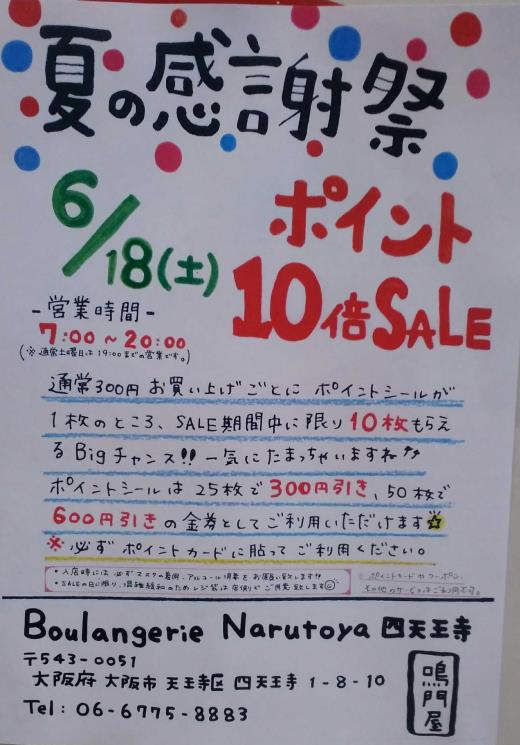 夏の感謝祭
6/18(土)
ポイント
10倍SALE
-営業時間-
7:00～20:00
(※通常土曜日は19:00までの営業です。)
通常300円お買い上げごとに ポイントシールが
1枚のところ、SALE期間中に限り10枚もらえ
るBigチャンス!! 一気にたまっちゃいますね
ポイントシールは25枚で300円引き、50枚で
600円引きの金券としてご利用いただけます☆
※必ずポイントカードに貼ってご利用ください。
・入店時には必ずマスクの着用、アルコール消毒をお願い致します!!
・SALEの日に限り、混雑緩和のためレジ袋は店側でご用意致します
※ポイントカードやクーポン、
その他のサービスはご利用不可。
Boulangerie Narutoya 四天王寺
〒543-0051
大阪府 大阪市 天王寺区 四天王寺 1-8-10
Tel: 06-6775-8883
鳴門屋